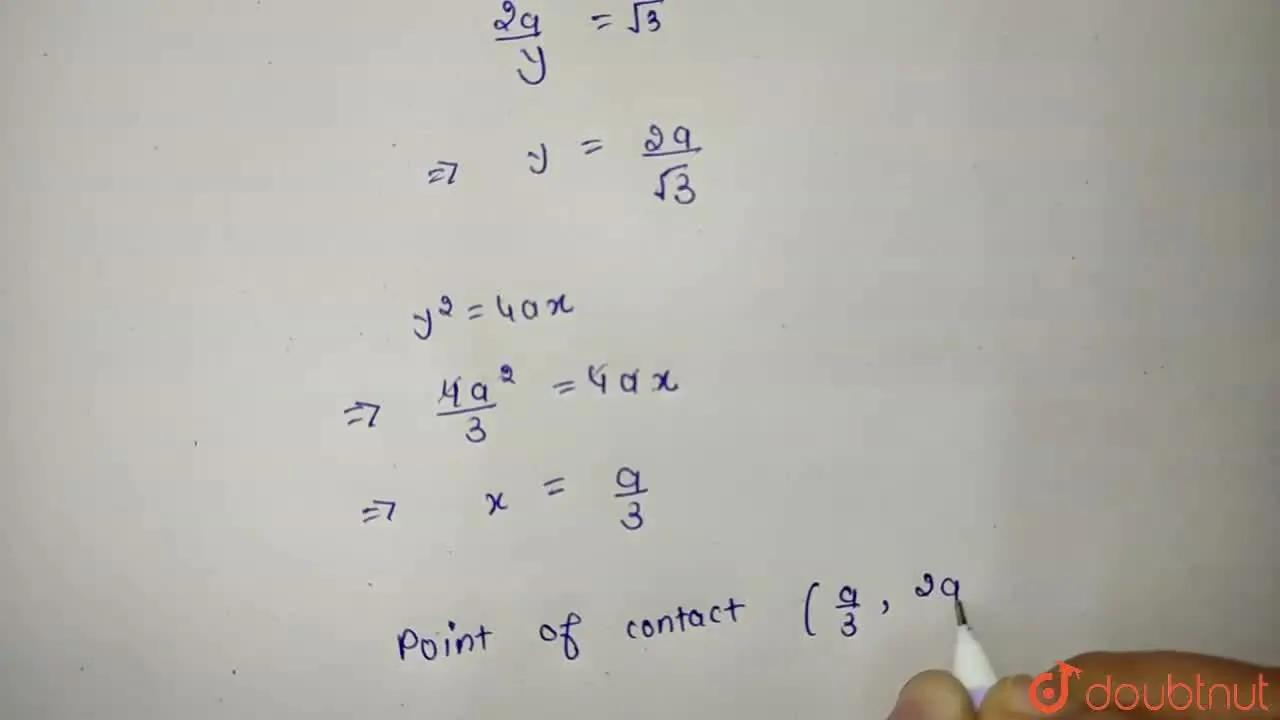 2a/y = √3
⇒ y = 2a/√3
y² = 4ax
⇒ 4a²/3 = 4ax
⇒ x = a/3
Point of contact (a/3, 2a
doubtnut